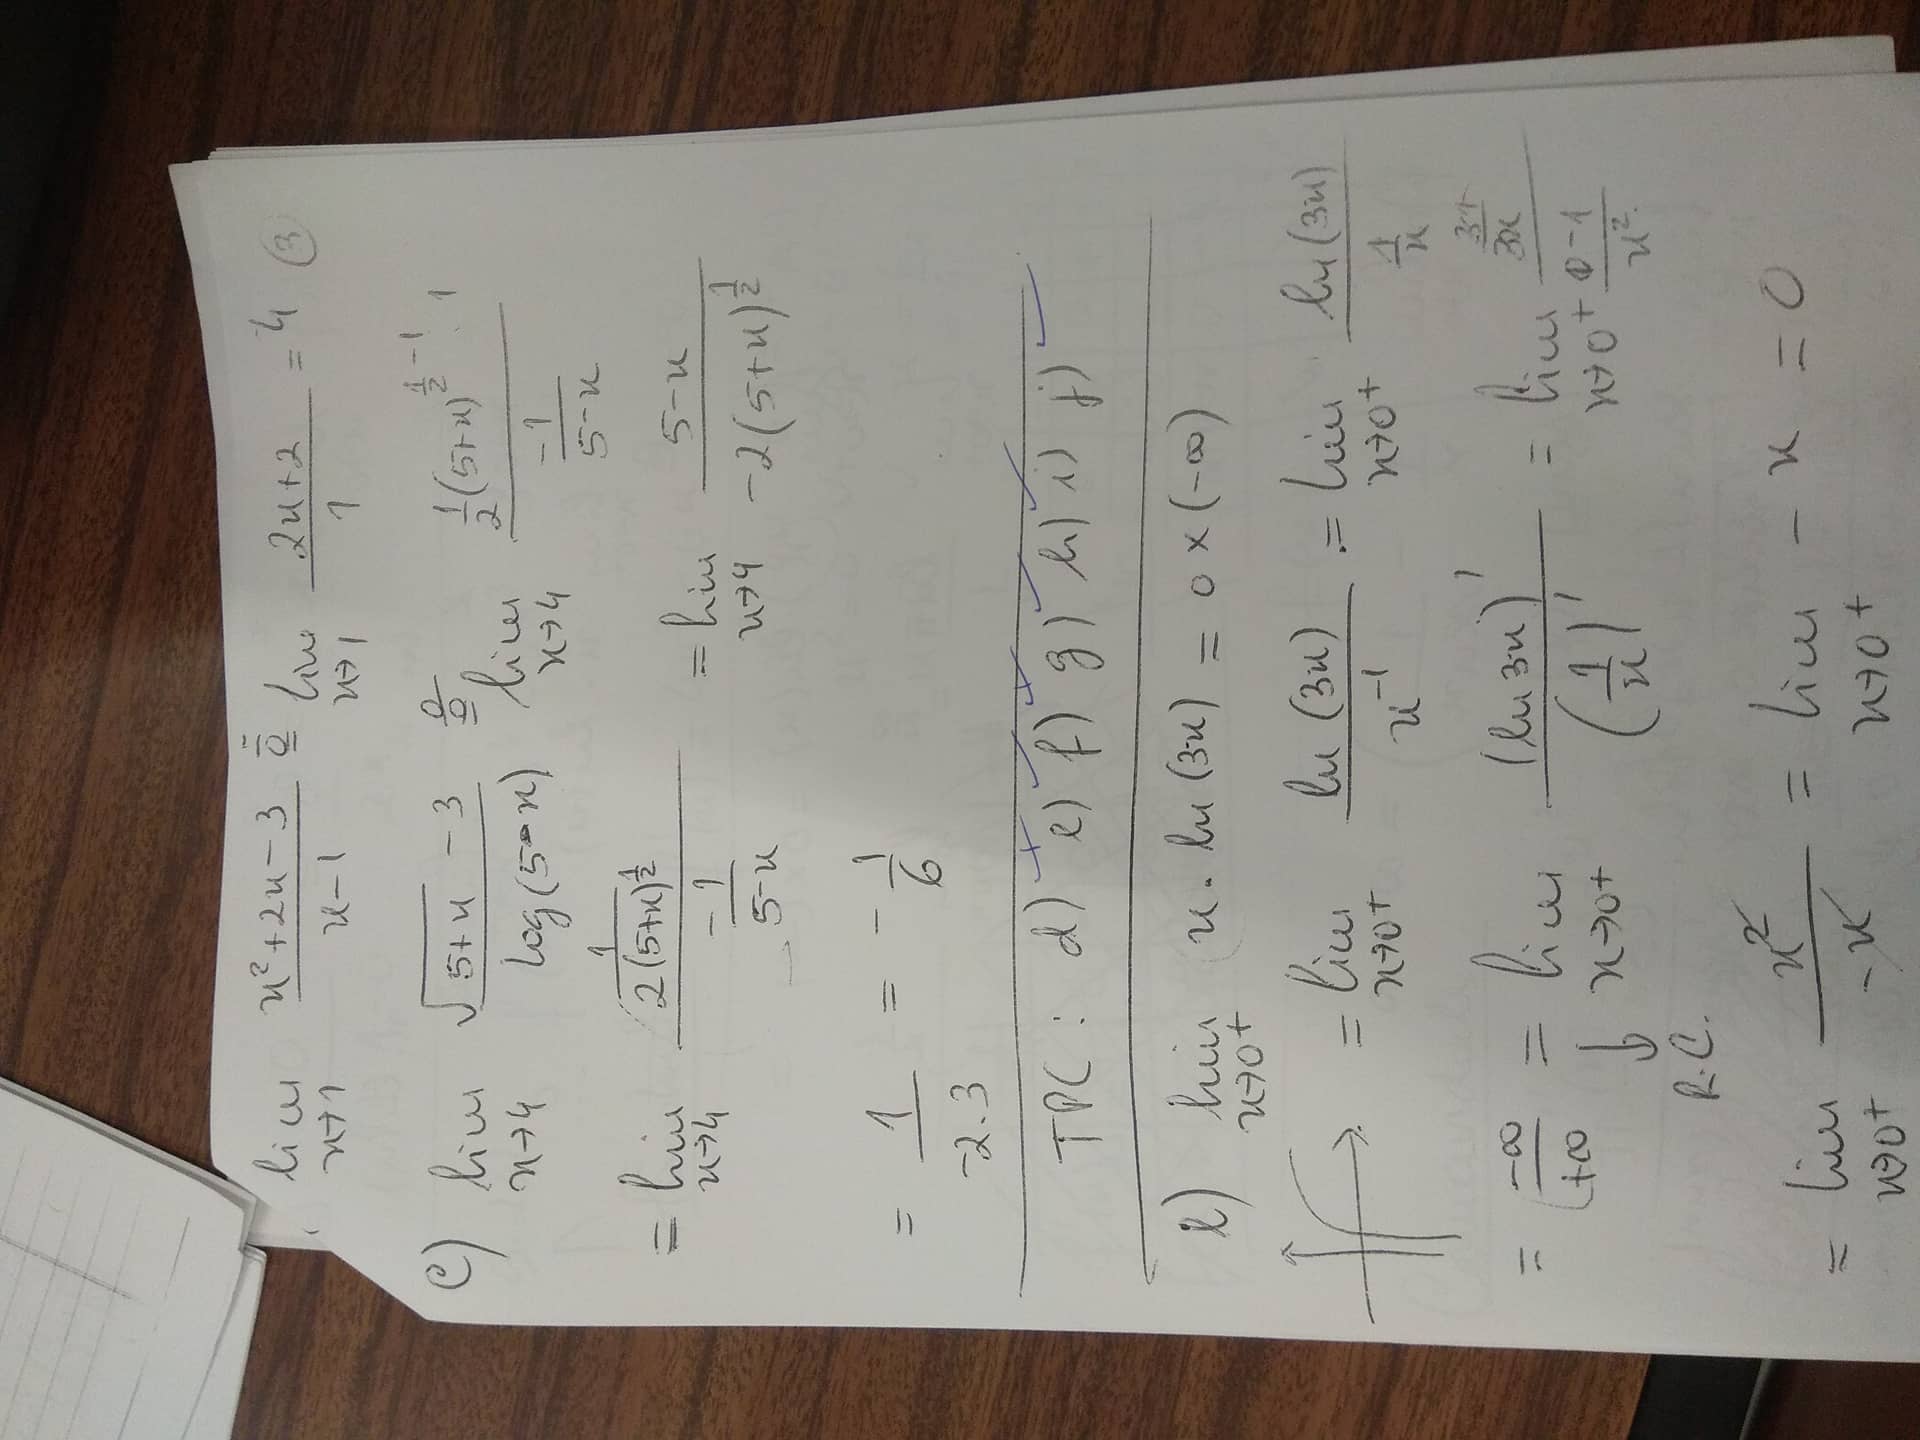 lim x→1 (x²+2x-3)/(x-1) = lim x→1 (2x+2)/1 = 4 ③
c) lim x→4 (√(5+x) - 3)/(log(5-x)) =(0/0) lim x→4 (1/2 (5+x)^(1/2 - 1) · 1)/(-1/(5-x))
= lim x→4 (1/(2(5+x)^(1/2)))/(-1/(5-x)) = lim x→4 (5-x)/(-2(5+x)^(1/2))
= 1/(-2.3) = -1/6
TPC : d) e) f) g) h) i) j)
l) lim x→0+ x . ln(3x) = 0 × (-∞)
= lim x→0+ ln(3x)/x^(-1) = lim x→0+ ln(3x)/(1/x)
= -∞/+∞ = lim x→0+ (ln 3x)'/(1/x)' = lim x→0+ (3/3x)/((0-1)/x²)
R.C.
= lim x→0+ x²/(-x) = lim x→0+ -x = 0